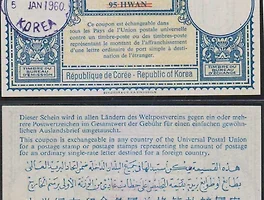 5 JAN 1960
KOREA
95 HWAN
Ce coupon est échangeable dans
tous les Pays de l'Union postale universelle
contre un timbre-poste ou des timbres-poste
représentant le montant de l'affranchissement
d'une lettre ordinaire de port simple à destination
de l'étranger.
République de Corée - Republic of Korea
TIMBRE DU
BUREAU
D'ÉMISSION
TIMBRE DU
BUREAU
D'ÉCHANGE
Dieser Schein wird in allen Ländern des Weltpostvereins gegen ein oder mehrere
Postwertzeichen im Gesamtwert der Gebühr für einen einfachen gewöhnlichen
Auslandsbrief umgetauscht.
This coupon is exchangeable in any country of the Universal Postal Union
for a postage stamp or postage stamps representing the amount of postage
for an ordinary single-rate letter destined for a foreign country.